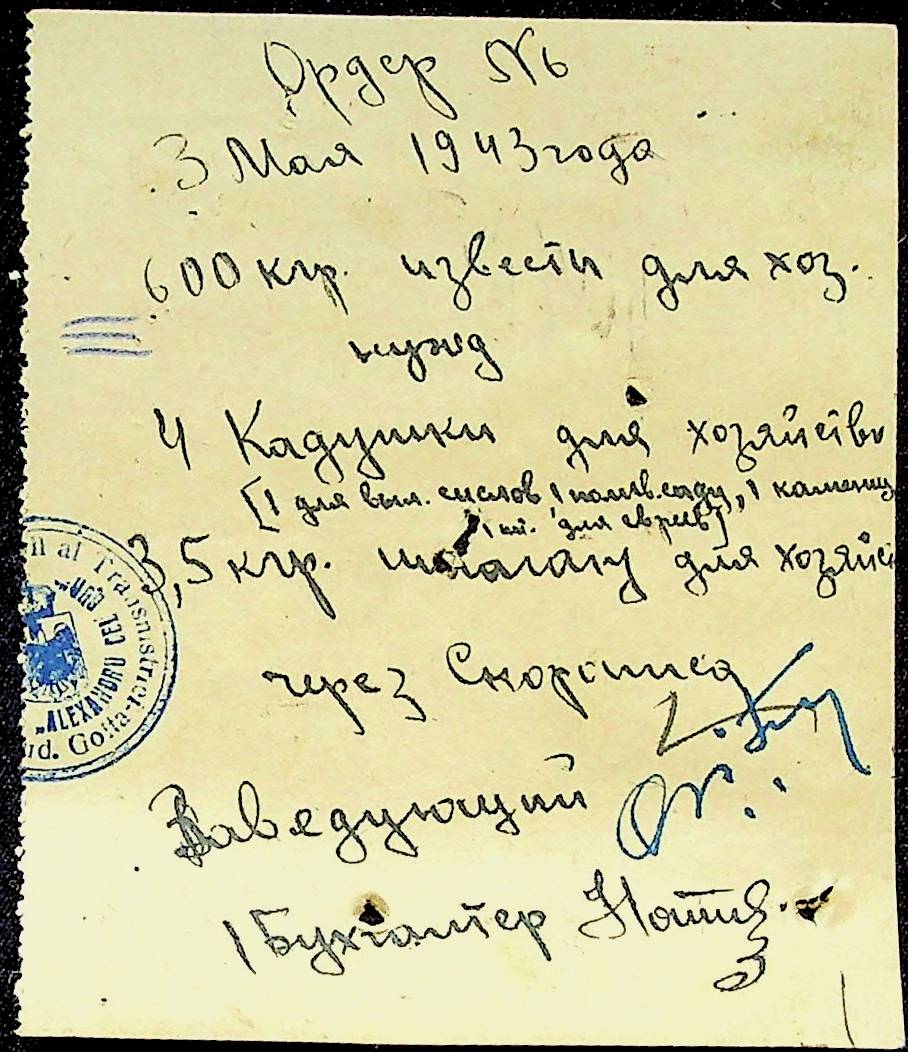 Ордер №
3 Мая 1943 года
600 кгр. извести для хоз.
нужд
4 Кадушки для хозяйства
[1 для вып. 1 полив. саду, 1
1 шт. для евреев]
3,5 кгр. для хозяйс
через
Заведующий
Бухгалтер
al Transnistriei
"ALEXANDRU CEL BUN"
Jud. Golta